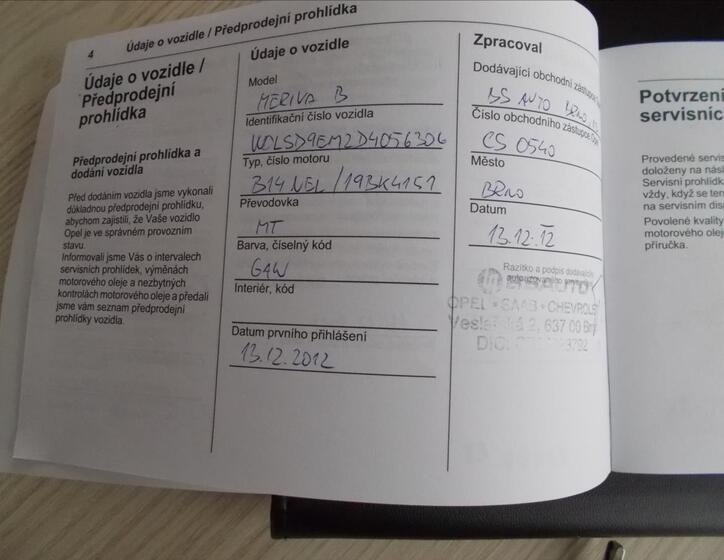 4 Údaje o vozidle / Předprodejní prohlídka
Údaje o vozidle /
Předprodejní
prohlídka
Předprodejní prohlídka a
dodání vozidla
Před dodáním vozidla jsme vykonali
důkladnou předprodejní prohlídku,
abychom zajistili, že Vaše vozidlo
Opel je ve správném provozním
stavu.
Informovali jsme Vás o intervalech
servisních prohlídek, výměnách
motorového oleje a nezbytných
kontrolách motorového oleje a předali
jsme vám seznam předprodejní
prohlídky vozidla.
Údaje o vozidle
Model
MERIVA B
Identifikační číslo vozidla
W0LSD9EM2D4056306
Typ, číslo motoru
B14NEL / 19BK4151
Převodovka
MT
Barva, číselný kód
GAW
Interiér, kód
Datum prvního přihlášení
13.12.2012
Zpracoval
Dodávající obchodní zástupce
BS AUTO BRNO
Číslo obchodního zástupce
CS 0540
Město
BRNO
Datum
13.12.12
Razítko a podpis
BS AUTO
OPEL • SAAB • CHEVROLET
2, 637 00
DIČ:
Potvrzení
servisních
Provedené servis
doloženy na násl
Servisní prohlídk
vždy, když se ten
na servisním disp
Povolené kvality
motorového oleje
příručka.